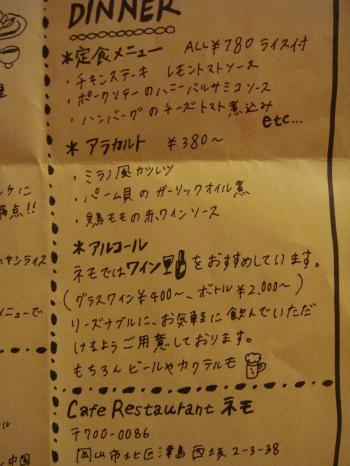 DINNER
*定食メニュー ALL¥780 ライス付
・チキンステーキ レモントマトソース
・ポークソテーのハニーバルサミコソース
・ハンバーグのチーズトマト煮込み
etc...
*アラカルト ¥380～
・ミラノ風カツレツ
・パーム貝のガーリックオイル煮
・鶏モモの赤ワインソース
*アルコール
ネモではワインをおすすめしています。
(グラスワイン¥400～、ボトル¥2,000～)
リーズナブルに、お気軽に飲んでいただ
けるようご用意しております。
もちろんビールやカクテルも
Cafe Restaurant ネモ
〒700-0086
岡山市北区津島西坂2-3-38
ンケに
満点!!
ハヤシライス
メニューで
ール
中国